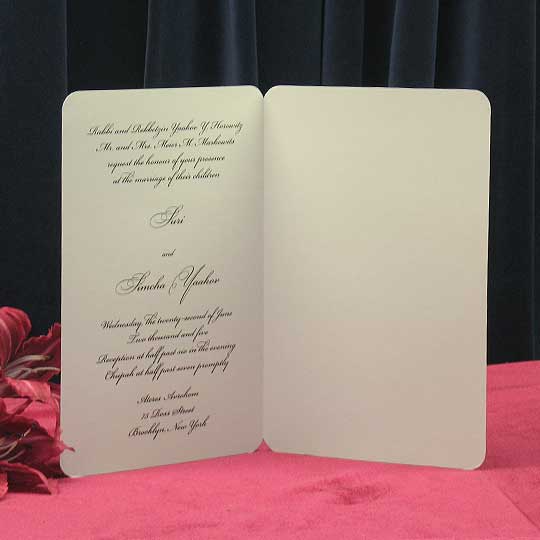 Rabbi and Rebbetzin Yaakov Y. Horowitz
Mr. and Mrs. Meier M. Markowits
request the honour of your presence
at the marriage of their children
Suri
and
Simcha Yaakov
Wednesday, the twenty-second of June
Two thousand and five
Reception at half past six in the evening
Chupah at half past seven promptly
Ateres Avrohom
75 Ross Street
Brooklyn, New York